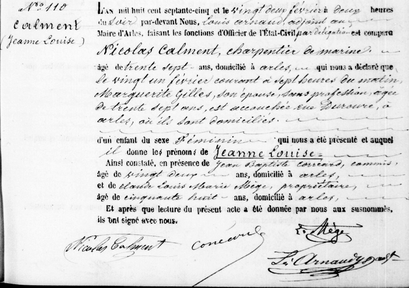 No 110
Calment
(Jeanne Louise)
L'AN mil huit cent septante-cinq et le vingt deux février à deux heures
du soir par-devant Nous, Louis Arnaud, adjoint au
Maire d'Arles, faisant les fonctions d'Officier de l'État-Civil par délégation est comparu
Nicolas Calment, charpentier de marine
âgé de trente sept ans, domicilié à arles, qui nous a déclaré que
le vingt un février courant à sept heures du matin,
Marguerite Gilles, son épouse, sans profession, âgée
de trente sept ans, est accouchée rue du
arles, où ils sont domiciliés.
d'un enfant du sexe féminin qui nous a été présenté et auquel
il donne les prénoms de Jeanne Louise
Ainsi constaté, en présence de Jean Baptiste commis,
âgé de vingt deux ans, domicilié à arles,
et de Louis Marie Mège, propriétaire,
âgé de cinquante huit ans, domicilié à arles,
Et après que lecture du présent acte a été donnée par nous aux susnommés,
ils ont signé avec nous.
L. Mège
Nicolas Calment
Ls. Arnaud adjt